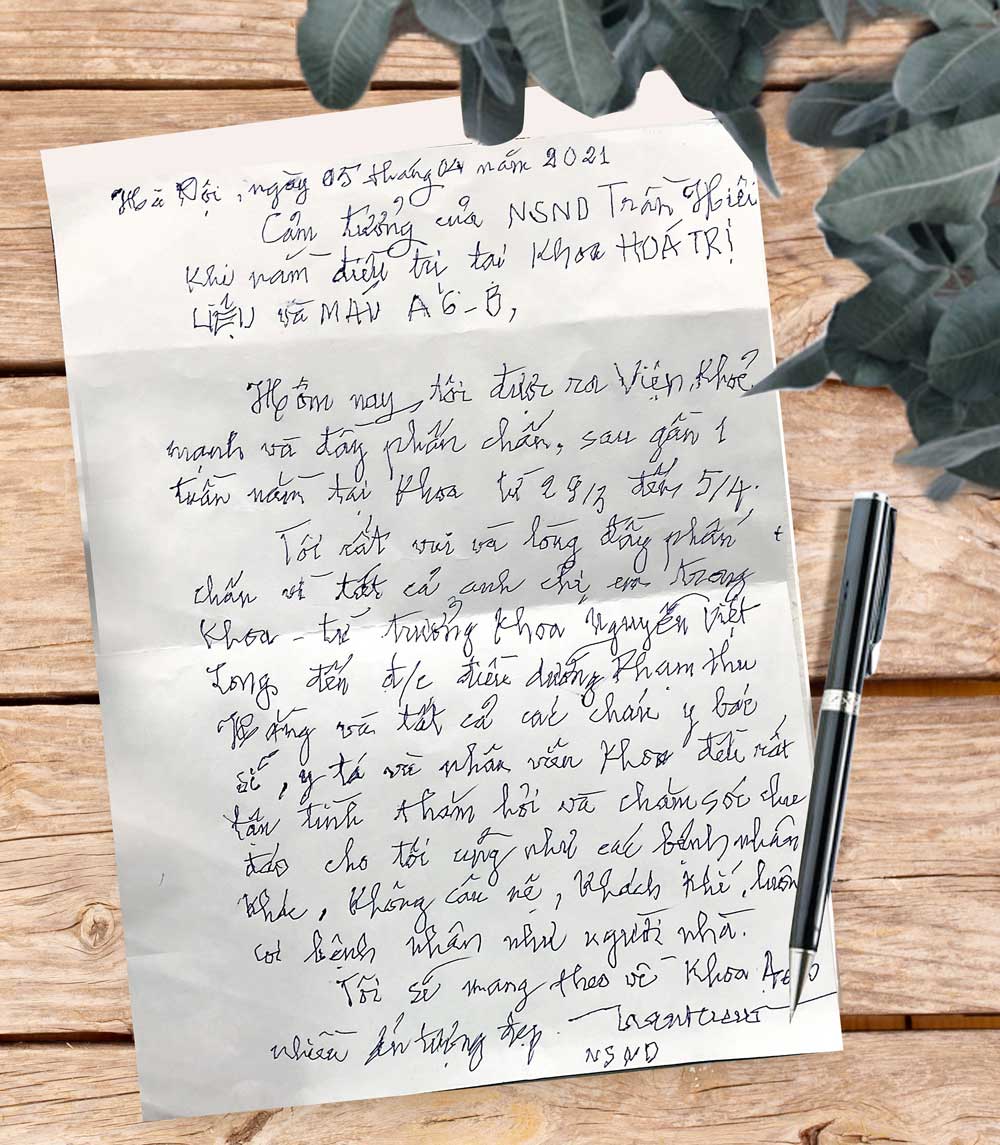 Hà Nội, ngày 05 tháng 04 năm 2021
Cảm tưởng của NSND Trần Hiếu
Khi nằm điều trị tại Khoa HOÁ TRỊ
LIỆU và MÁU A6-B,
Hôm nay, tôi được ra Viện, Khoẻ
mạnh và đầy phấn chấn, sau gần 1
tuần nằm tại Khoa từ 29/3 đến 5/4.
Tôi rất vui và lòng đầy phấn
chấn vì tất cả anh chị em trong
Khoa - từ trưởng Khoa Nguyễn Việt
Long, đến đ/c điều dưỡng Phạm Thu
Hằng và tất cả các cháu y bác
sĩ, y tá và nhân viên Khoa đều rất
tận tình thăm hỏi và chăm sóc chu
đáo cho tôi cũng như các bệnh nhân
khác, Không câu nệ, Khách Khí, luôn
coi bệnh nhân như người nhà.
Tôi sẽ mang theo về Khoa
nhiều ấn tượng đẹp.
NSND